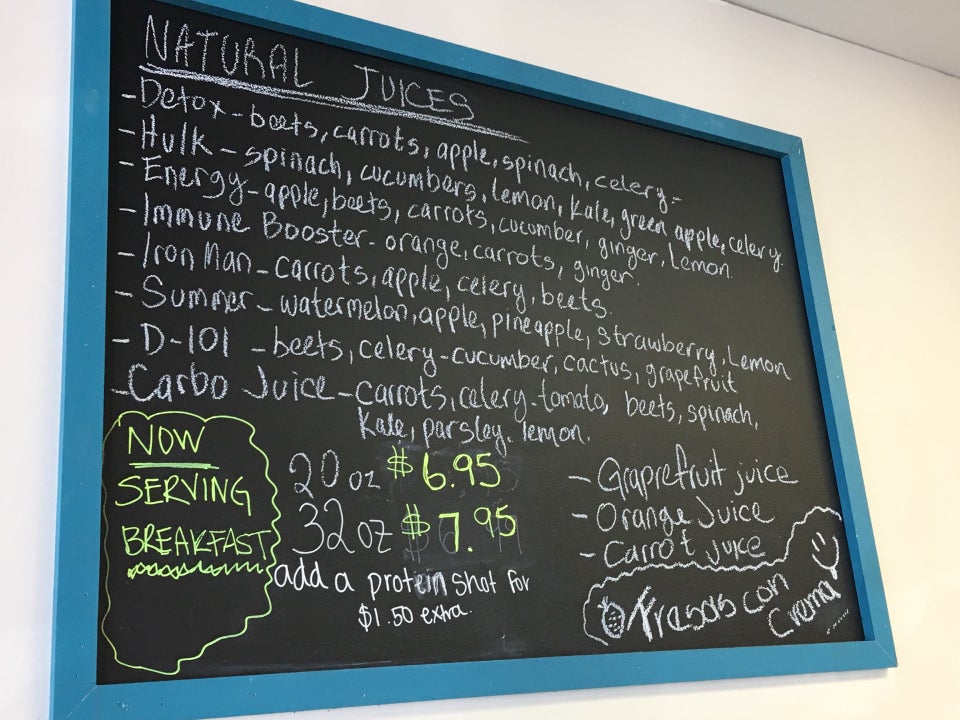 NATURAL JUICES
- Detox - beets, carrots, apple, spinach, celery -
- Hulk - spinach, cucumbers, lemon, kale, green apple, celery.
- Energy - apple, beets, carrots, cucumber, ginger, Lemon.
- Immune Booster - orange, carrots, ginger.
- Iron Man - carrots, apple, celery, beets.
- Summer - watermelon, apple, pineapple, strawberry, Lemon
- D-101 - beets, celery - cucumber, cactus, grapefruit
- Carbo Juice - carrots, celery - tomato, beets, spinach,
Kale, parsley. lemon.
NOW
SERVING
BREAKFAST
20 oz $6.95
32 oz $7.95
add a protein shot for
$1.50 extra.
- Graprefruit juice
- Orange Juice
- Carrot juice
Frasas con
Crema